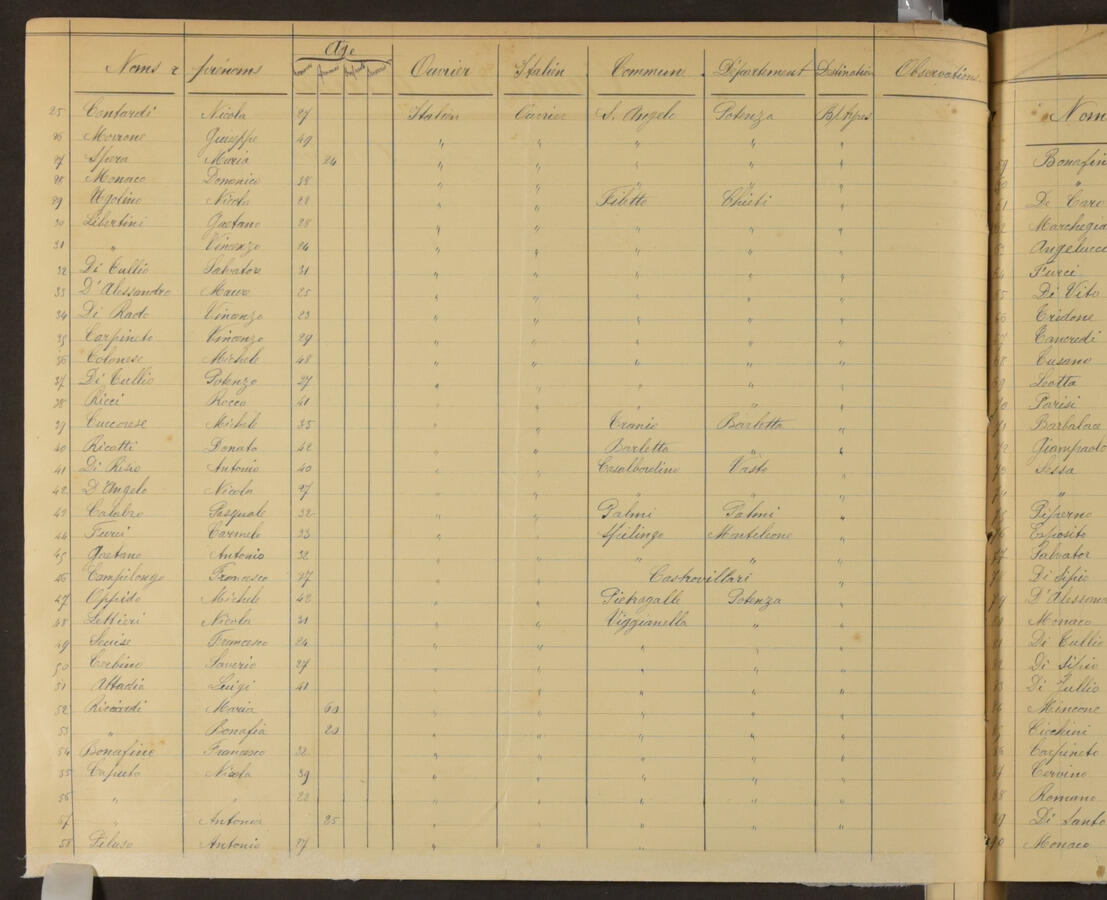 Age
Noms & prénoms Ouvrier Italien Commune Département Destination Observations
25 Contardi Nicola 27 Italien Ouvrier S. Angelo Potenza
26 Morrone Giuseppe 49 " " " " "
27 Spera Maria 24 " " " " "
28 Monaco Domenico 38 " " " " "
29 Ugolino Nicola 28 " " Filetto Chieti "
30 Libertini Gaetano 28 " " " " "
31 " Vincenzo 24 " " " " "
32 Di Tullio Salvatore 31 " " " " "
33 D'Alessandro Mauro 25 " " " " "
34 Di Rado Vincenzo 23 " " " " "
35 Carpineto Vincenzo 29 " " " " "
36 Colonese Michele 48 " " " " "
37 Di Tullio Potenzo 27 " " " " "
38 Ricci Rocco 41 " " " " "
39 Cuccorese Michele 35 " " Tranio Barletta "
40 Ricatti Donato 42 " " Barletta " "
41 Di Risio Antonio 40 " " Casalbordino Vasto "
42 D'Angelo Nicola 27 " " " " "
43 Calabro Pasquale 32 " " Palmi Palmi "
44 Furci Carmelo 33 " " Spilingo Monteleone "
45 Gaetano Antonio 32 " " " " "
46 Campilongo Francesco 27 " " Castrovillari "
47 Oppido Michele 42 " " Pietragalle Potenza "
48 Lettieri Nicola 31 " " Viggianella " "
49 Senise Francesco 24 " " " " "
50 Cerbino Saverio 27 " " " " "
51 Attadia Luigi 41 " " " " "
52 Ricciardi Maria 60 " " " " "
53 " Bonafia 20 " " " " "
54 Bonafine Francesco 32 " " " " "
55 Caputo Nicola 39 " " " " "
56 " " 22 " " " " "
57 " Antonia 25 " " " " "
58 Peluso Antonio 27 " " " " "
Nom
59 Bonafin
60 "
61 Di Caro
62 Marchegia
63 Angelucci
64 Furci
65 Di Vito
66 Tridone
67 Tancredi
68 Cusano
69 Leotta
70 Parisi
71 Barbalace
72 Giampaolo
73 Sessa
74 "
75 Piperno
76 Esposito
77 Salvator
78 Di Sipio
79 D'Alessand
80 Monaco
81 Di Tullio
82 Di Sipio
83 Di Jullio
84 Mincone
85 Cicchini
86 Carpineto
87 Cervino
88 Romano
89 Di Santo
90 Monaco